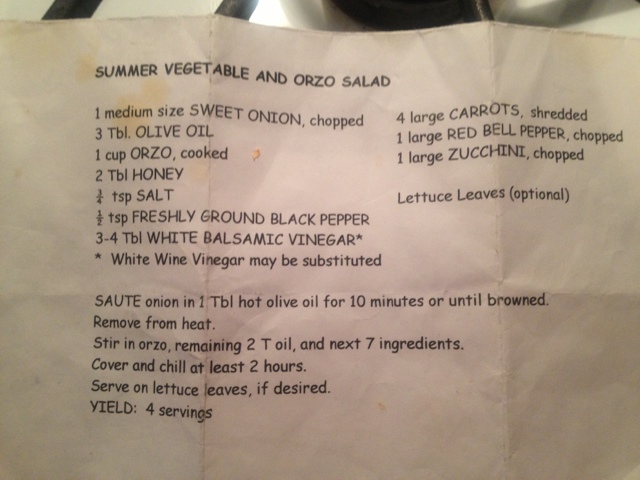 SUMMER VEGETABLE AND ORZO SALAD
1 medium size SWEET ONION, chopped
3 Tbl. OLIVE OIL
1 cup ORZO, cooked
2 Tbl HONEY
¾ tsp SALT
½ tsp FRESHLY GROUND BLACK PEPPER
3-4 Tbl WHITE BALSAMIC VINEGAR*
* White Wine Vinegar may be substituted
4 large CARROTS, shredded
1 large RED BELL PEPPER, chopped
1 large ZUCCHINI, chopped
Lettuce Leaves (optional)
SAUTE onion in 1 Tbl hot olive oil for 10 minutes or until browned.
Remove from heat.
Stir in orzo, remaining 2 T oil, and next 7 ingredients.
Cover and chill at least 2 hours.
Serve on lettuce leaves, if desired.
YIELD: 4 servings